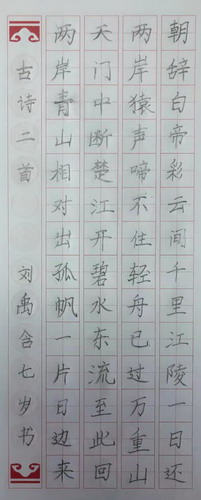 朝辞白帝彩云间千里江陵一日还
两岸猿声啼不住轻舟已过万重山
天门中断楚江开碧水东流至此回
两岸青山相对出孤帆一片日边来
古诗二首 刘禹含七岁书